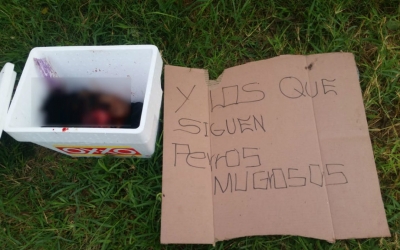 Y LOS QUE
SIGUEN
PERROS
MUGOSOS
OXXO